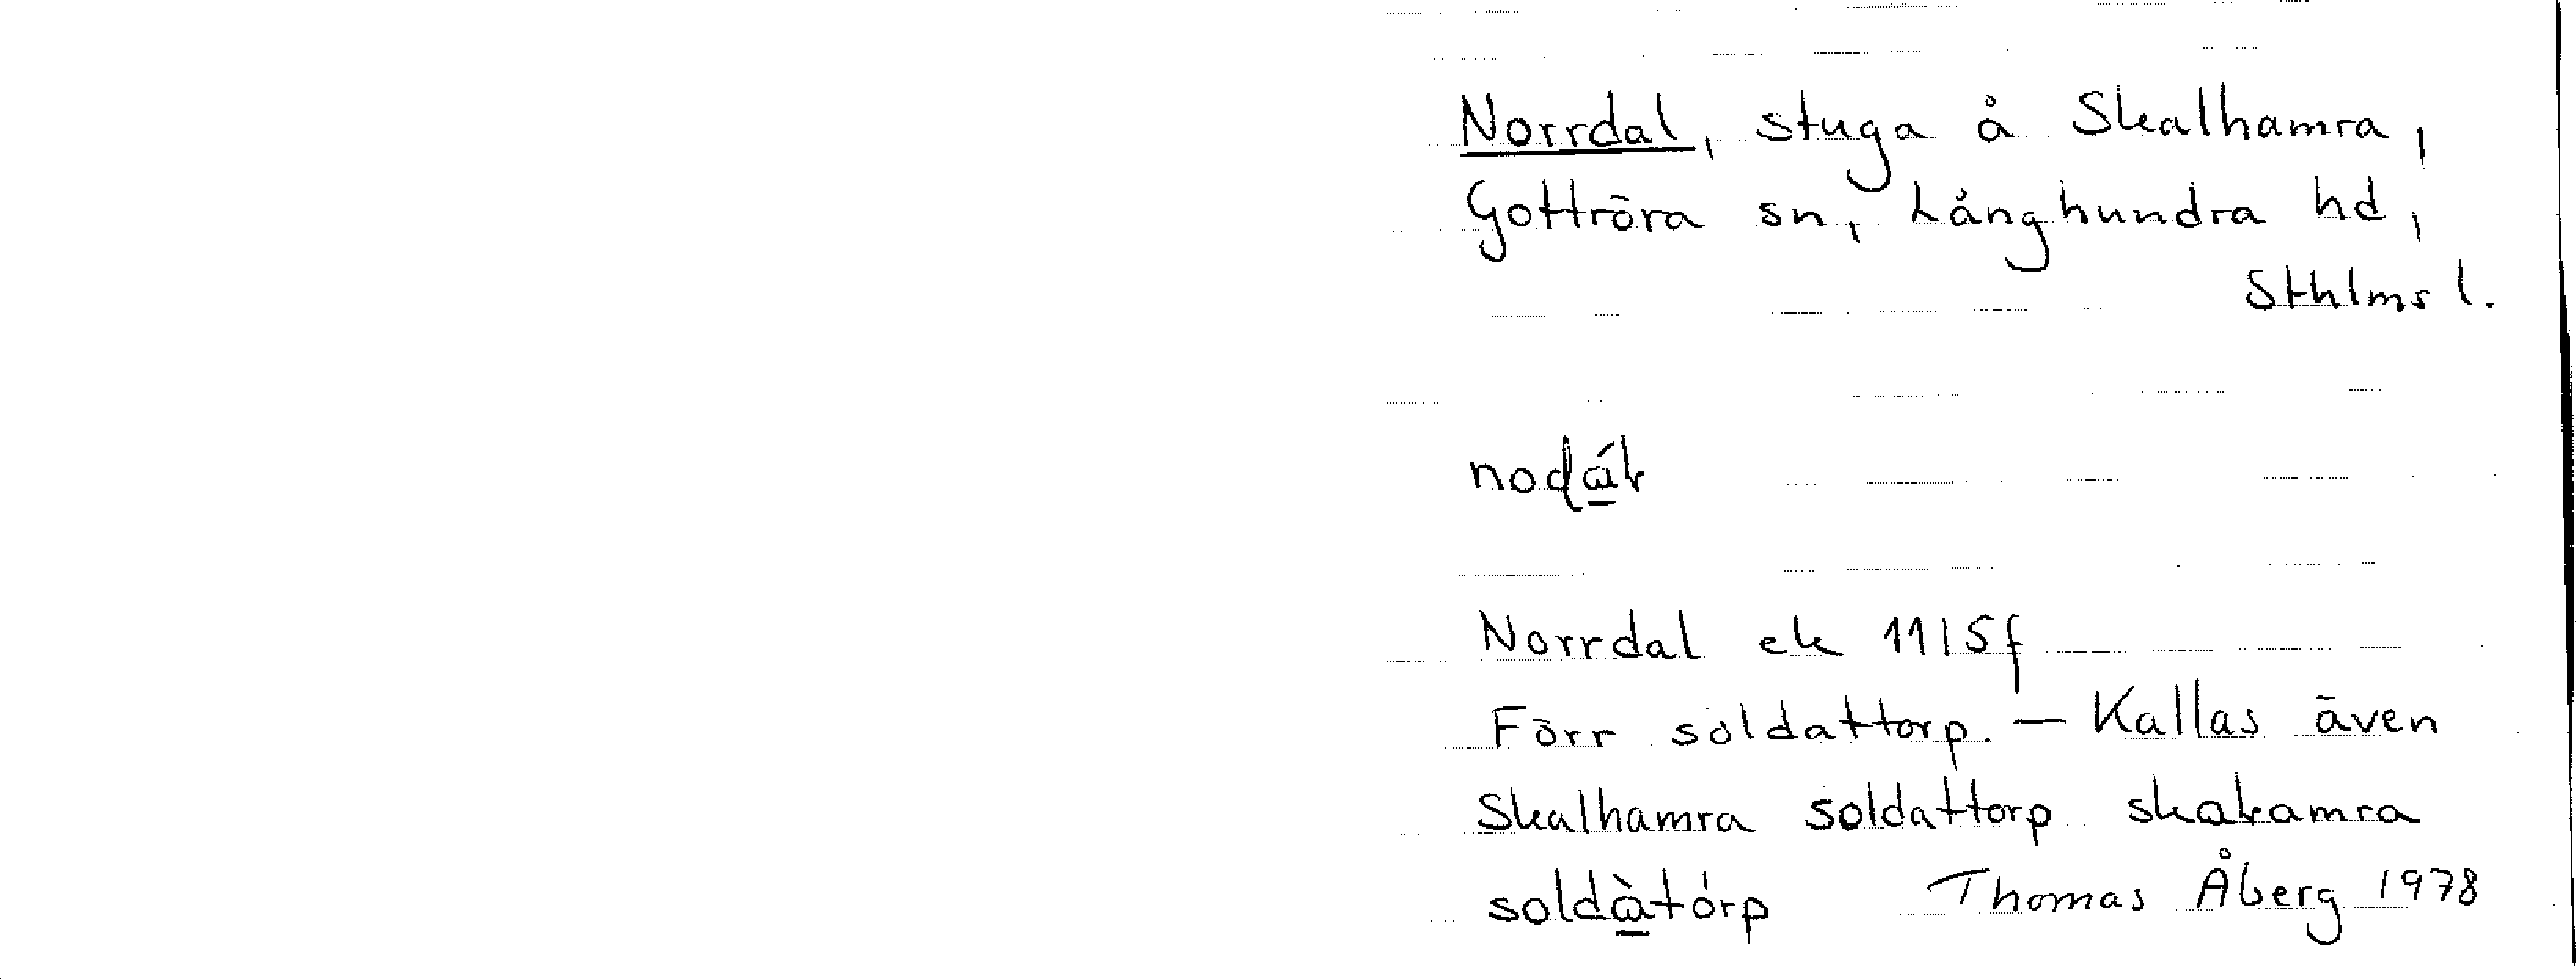 Norrdal, stuga å Skalhamra,
Gottröra sn, Långhundra hd,
Sthlms l.
Norrdal ek 11I5f
Förr soldattorp. — Kallas även
Skalhamra soldattorp skaɭamra
soldà̱tórp Thomas Åberg 1978